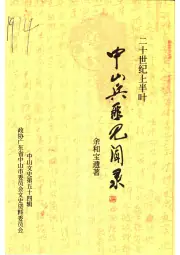 二十世纪上半叶
中山兵匪见闻录
余和宝遗著
中山文史第五十四辑
政协广东省中山市委员会文史资料委员会